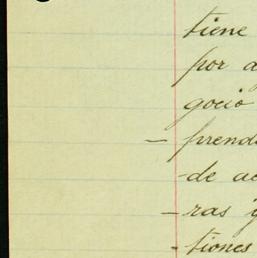 tiene
por a
gocio
- prend
-de ac
-ras y
-tiones